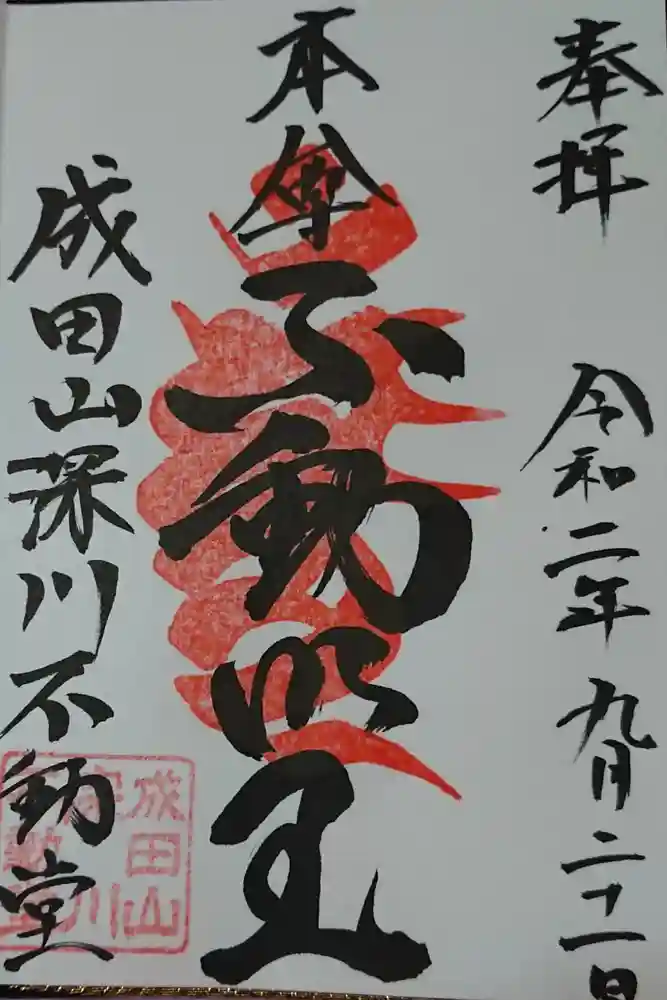 奉拝
令和二年九月二十一日
本尊
不動明王
成田山深川不動堂
成田山
深川
不動堂